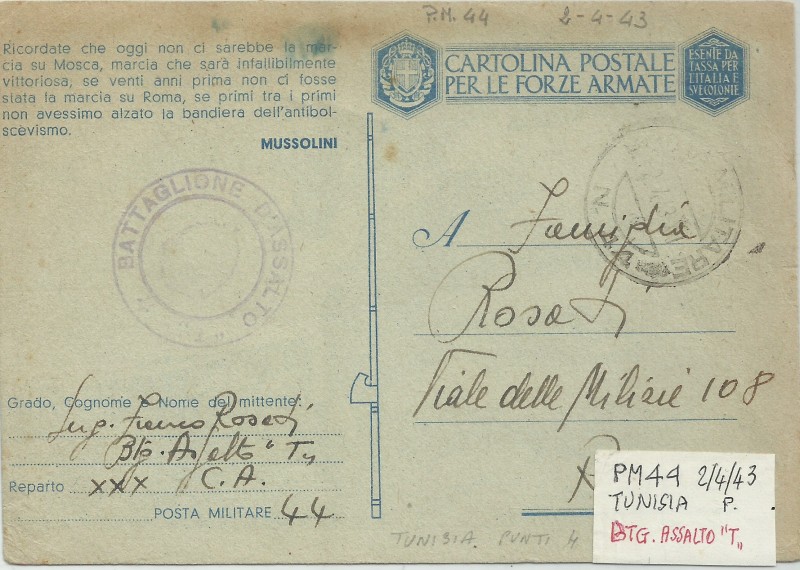 P.M. 44 2-4-43
Ricordate che oggi non ci sarebbe la mar-
cia su Mosca, marcia che sarà infallibilmente
vittoriosa, se venti anni prima non ci fosse
stata la marcia su Roma, se primi tra i primi
non avessimo alzato la bandiera dell'antibol-
scevismo.
MUSSOLINI
CARTOLINA POSTALE
PER LE FORZE ARMATE
ESENTE DA
TASSA PER
L'ITALIA E
SUE COLONIE
BATTAGLIONE D'ASSALTO "T"
MILITARE
A Famiglia
Rosati
Viale delle Milizie 108
Grado, Cognome e Nome del mittente:
Franco Rosati
Btg. Assalto "T"
Reparto XXX C.A.
POSTA MILITARE 44
TUNISIA PUNTI 4
PM44 2/4/43
TUNISIA P.
BTG. ASSALTO "T"